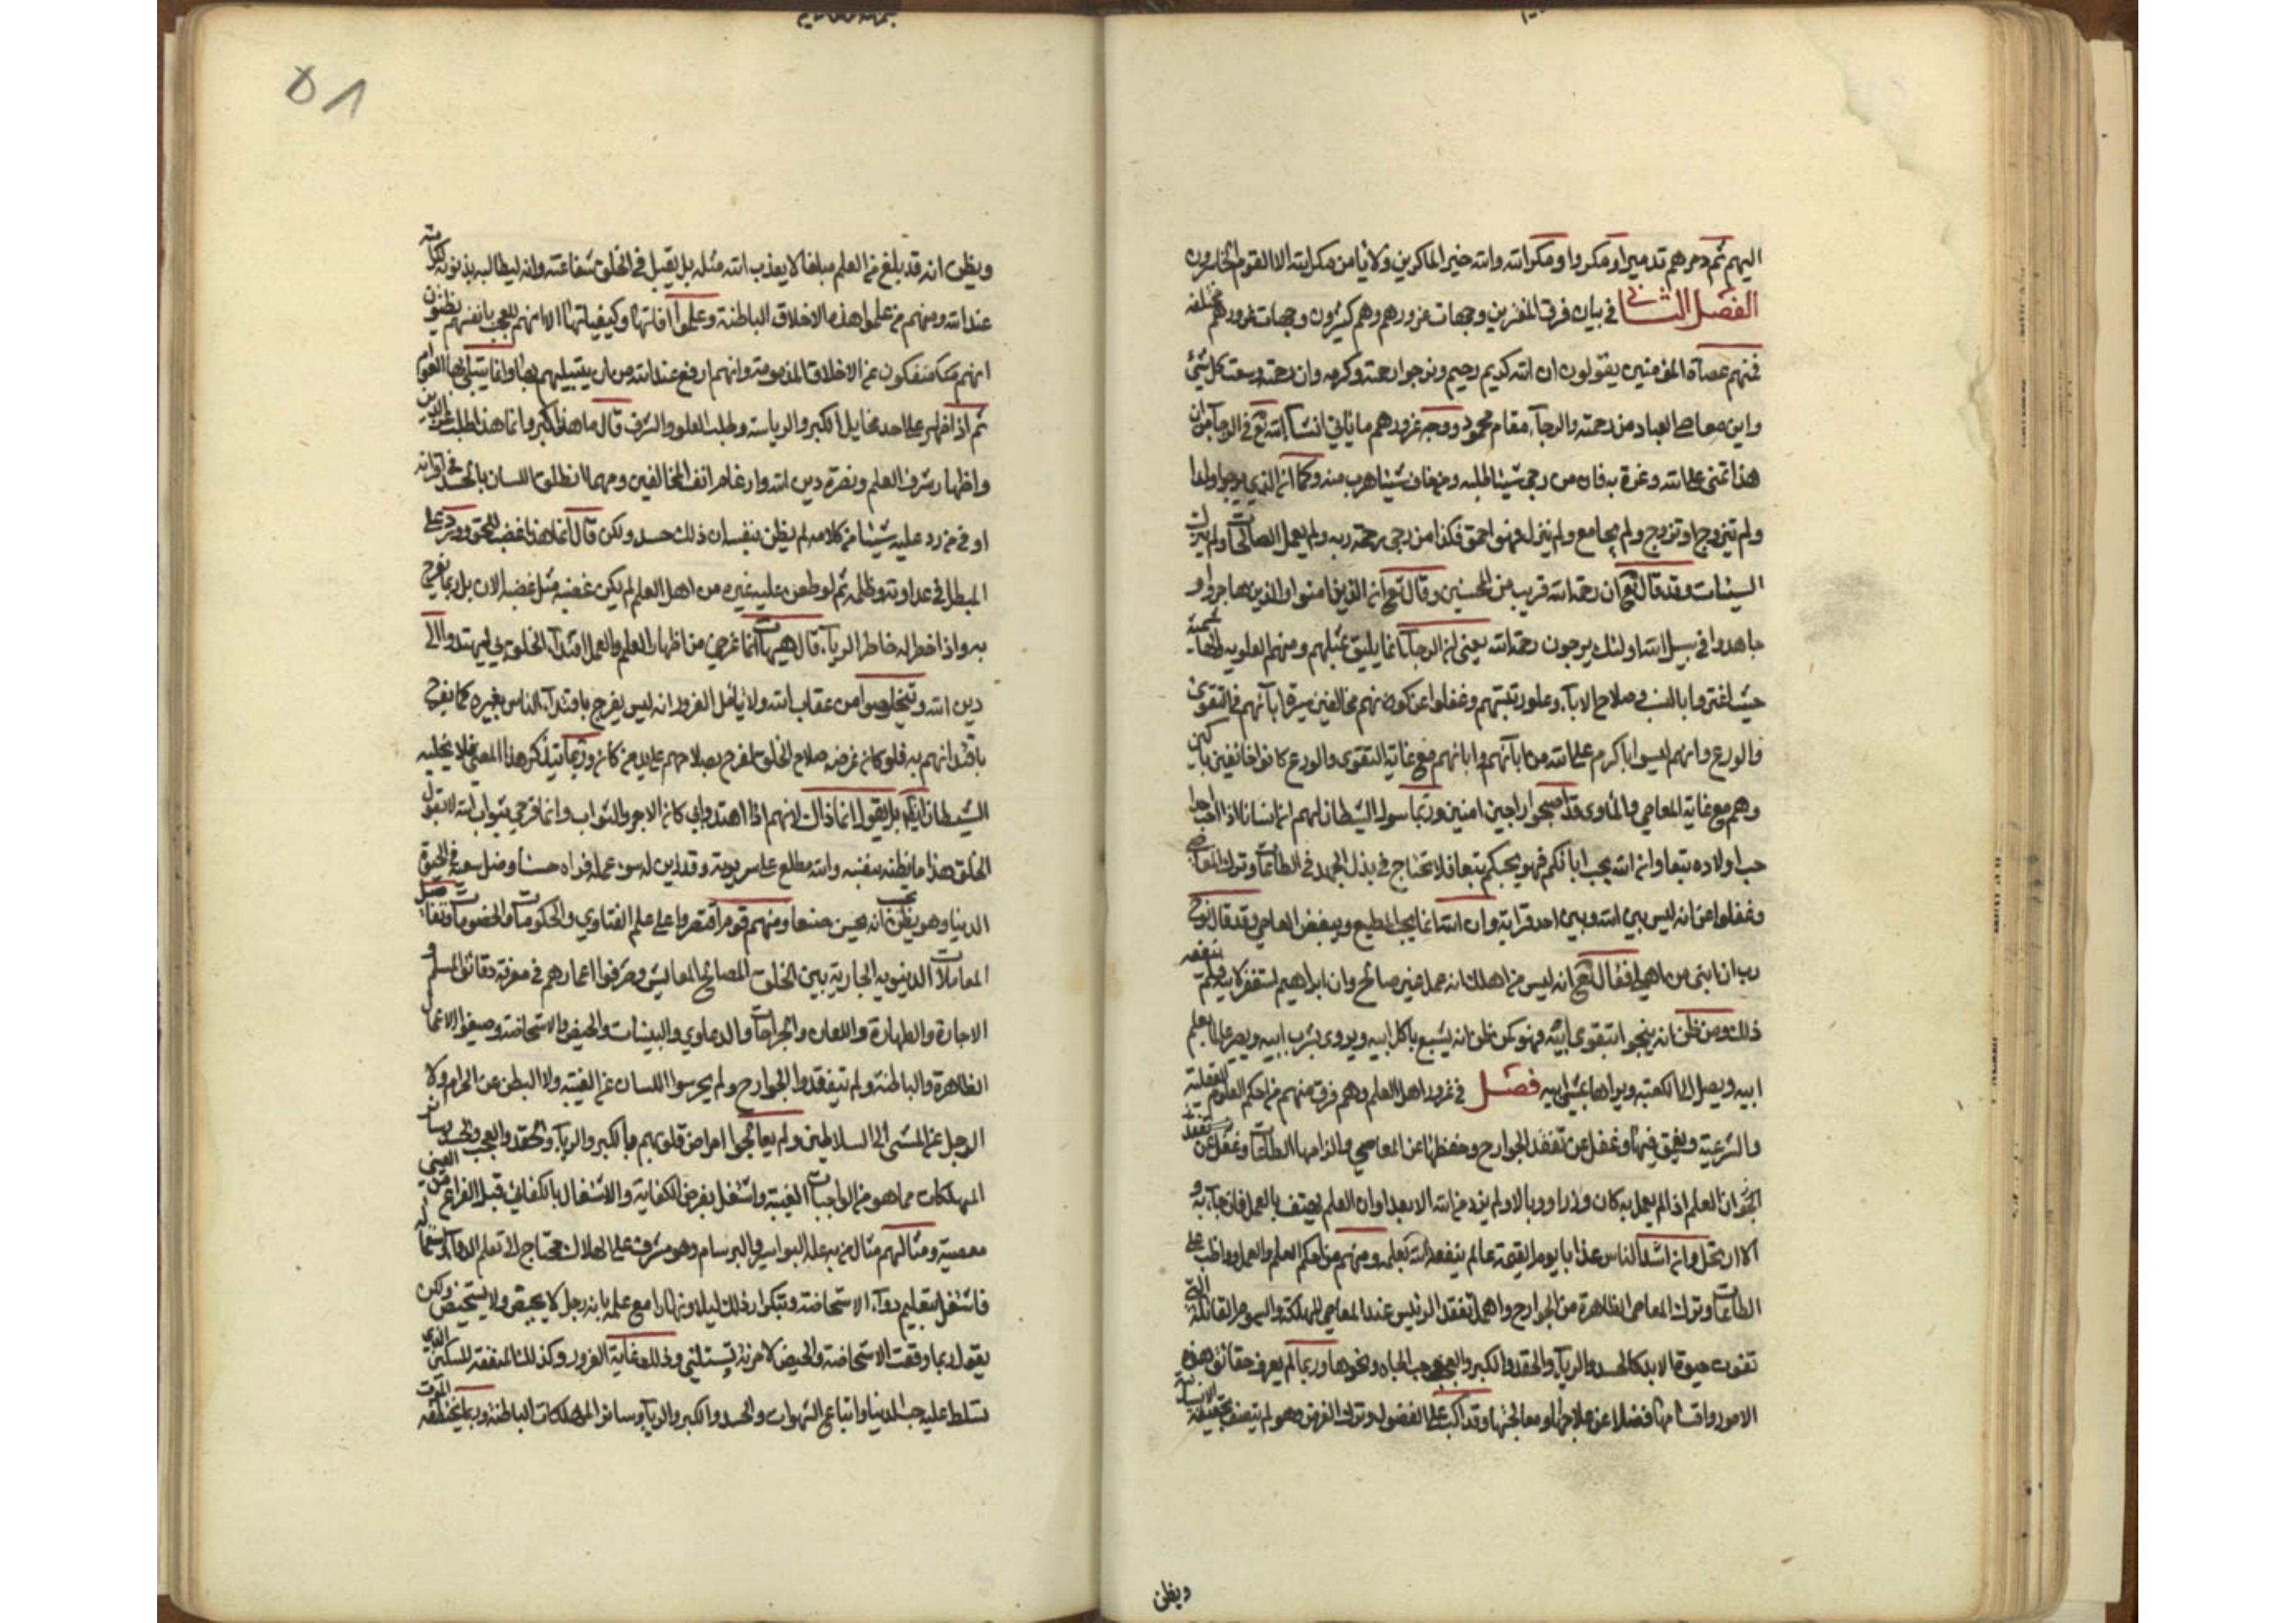 اليهم ثم دمرهم تدميرا ومكروا ومكر الله والله خير الماكرين ولا يامن مكر الله الا القوم الخاسرون
الفصل الثاني في بيان فرق المغترين وجهات غرورهم وهم كثيرون وجهات غرورهم مختلفة
فمنهم عصاة المؤمنين يقولون ان الله كريم رحيم ونرجوا رحمته وكرمه وان رحمته وسعت كل شيء
واين معاصي العباد من رحمته والرجآء مقام محمود ووجه غرورهم ما ياتي انشآ الله تع في الرجآ من ان
هذا تمنى على الله وغرة به فان من رجى شيئا طلبه ومن خاف شيئا هرب منه وكما ان الذي يرجوا ولدا
ولم يتزوج او تزوج ولم يجامع ولم ينزل فهو احمق فكذا من رجى رحمة ربه ولم يعمل الصالحات ولم يترك
السيئات وقد قال تع ان رحمة الله قريب من المحسنين وقال تع ان الذين امنوا والذين هاجروا و
جاهدوا في سبيل الله اولئك يرجون رحمة الله يعني ان الرجآ انما يليق بمثلهم ومنهم العلويه
حيث اغتروا بالنسب وصلاح الابآء وعلو رتبتهم وغفلوا عن كونهم مخالفين سيرة ابآئهم في التقوى
والورع وانهم ليسوا باكرم على الله من ابآئهم وابائهم مع غاية التقوى والورع كانوا خائفين باكين
وهم مع غاية المعاصي والمناوى قد اصبحوا راجين امنين وربما سول الشيطان لهم ان انسانا اذا احب احدا
حب اولاده تبعا وان الله يحب ابائكم فهو يحبكم تبعا فلا تحتاج في بذل الجهد في الطاعات وترك المعاصي
وغفلوا عن انه ليس بين الله وبين احد قرابة وان الله انما يحب المطيع ويبغض العاصي وقد قال نوح
رب ان ابني من اهلي فقال تع انه ليس من اهلك انه عمل غير صالح وان ابراهيم استغفر لابيه فلم ينفعه
ذلك ومن ظن انه ينجو بتقوى ابيه فهو كمن ظن انه يشبع باكل ابيه ويروى بشرب ابيه ويصير عالما بعلم
ابيه ويصل الى الكعبة ويراها بمشي ابيه فصل في غرور اهل العلم وهم فرق منهم من احكم العلوم العقلية
والشرعية وتعمق فيها وغفل عن تفقد الجوارح وحفظها عن المعاصي والزامها الطاعات وغفل عن
ان العلم اذا لم يعمل به كان وزرا ووبالا ولم يزد من الله الا بعدا وان العلم يهتف بالعمل فان جآء به و
الا ارتحل وان اشد الناس عذابا يوم القيمة عالم لم ينفعه الله بعلمه ومنهم من احكم العلم والعمل وواظب على
الطاعات وترك المعاصي الظاهرة من الجوارح واهمل تفقد الرئيس عند المعاصي المهلكة والسموم القاتلة التي
تفوت حيوة الابد كالحسد والريآء والحقد والكبر والعجب وحب الجاه ونحوها وربما لم يعرف حقائق هذه
الامور واقسامها فضلا عن علاجها ومعالجتها وقد اكب على الفضول وترك الفرض وهو لم يتصف بحقيقة الانسانية
ويظن
ويظن انه قد بلغ من العلم مبلغا لا يعذب الله مثله بل يقبل في الخلق شفاعته وانه لا يطالبه بذنوبه لكرامته
عند الله ومنهم من علموا هذه الاخلاق الباطنة وعلموا افاتها وكيفياتها الا انهم للعجب بانفسهم يظنون
انهم منفكون عن الاخلاق المذمومة وانهم ارفع عند الله من ان يبتليهم بها وانما يبتلى بها العوام
ثم اذا ظهر على احد مخايل الكبر والرياسة وطلب العلو والشرف قال ما هذا كبر وانما هذا طلب عز الدين
واظهار شرف العلم ونصرة دين الله وارغام انف المخالفين ومهما انطلق اللسان بالحسد في اقرانه
او في من رد عليه شيئا من كلامه لم يظن بنفسه ان ذلك حسد ولكن قال انما هذا غضب للحق ورد على
المبطل في عداوته وظلمه ثم لو طعن على غيره من اهل العلم لم يكن غضبه مثل غضبه الان بل ربما يفرح
به واذا خطر له خاطر الريآء قال هيهات انما غرضي من اظهار العلم والعمل اقتدآء الخلق بي ليهتدوا الى
دين الله ويتخلصوا من عقاب الله ولا يتامل المغرور انه ليس يفرح باقتدآء الناس بغيره كما يفرح
باقتدائهم به فلو كان غرضه صلاح الخلق لفرح بصلاحهم على يد من كان وربما يتذكر هذا المعنى فلا يخليه
الشيطان ايضا بل يقول انما ذاك لانهم اذا اهتدوا بي كان الاجر والثواب لي وانما فرحي بثواب الله لا بقول
الخلق هذا ما يظنه بنفسه والله مطلع على سريرته وقد زين له سوء عمله فراه حسنا وضل سعيه في الحيوة
الدنيا وهو يظن انه يحسن صنعا ومنهم قوم اقتصروا على علم الفتاوي والحكومات والخصومات وتفاصيل
المعاملات الدنيويه الجارية بين الخلق لمصالح المعايش وصرفوا اعمارهم في معرفة دقائق السلم و
الاجارة والطهارة واللعان والجراحات والدعاوي والبينات والحيض والاستحاضة وضيعوا الاعمال
الظاهرة والباطنة ولم يتفقدوا الجوارح ولم يحرسوا اللسان عن الغيبة ولا البطن عن الحرام ولا
الرجل عن المشى الى السلاطين ولم يعالجوا امراض قلوبهم من الكبر والريآء والحقد والعجب والحسد وسائر
المهلكات مما هو من الواجبات العينية واشتغل بفرض الكفاية والاشتغال بالكفائي قبل الفراغ من العيني
معصية ومثالهم مثال من به علة البواسير والبرسام وهو مشرف على الهلاك محتاج الى تعلم الدوآء واستعماله
فاشتغل بتعليم دوآء الاستحاضة وبتكرار ذلك ليلا ونهارا مع علمه بانه رجل لا يحيض ولا يستحيض ولكن
يقول ربما وقعت الاستحاضة والحيض لامرئة تسئلني وذلك غاية الغرور وكذلك المتفقه المسكين الذي
تسلط عليه حب الدنيا واتباع الشهوات والحسد والكبر والريآء وسائر المهلكات الباطنة وربما يختطفه الموت